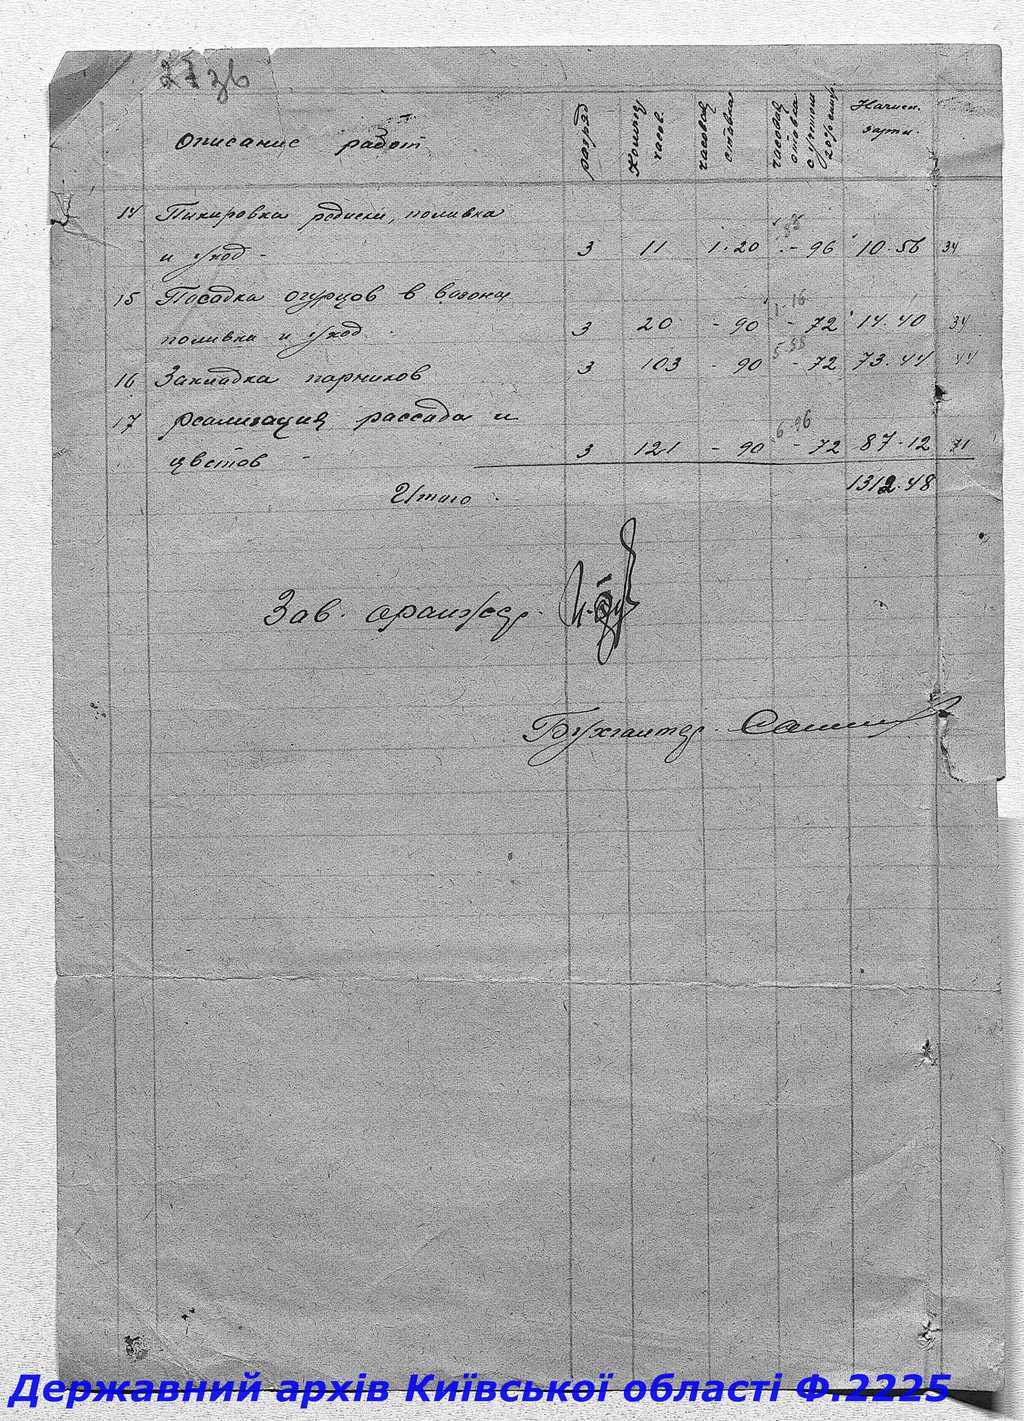 27 зв
Описание работ
разряд
Колич. часов.
часовая ставка
часовая ставка с учетом
Начисл. зарпл.
14 Пикировка редиски, поливка
и уход - 3 11 1.20 - 96 10.56 34
15 Посадка огурцов в вазоны
1-16
поливка и уход. 3 20 - 90 - 72 14.40 34
5-98
16 Закладка парников 3 103 - 90 - 72 73.44 44
17 реализация рассада и
6-96
цветов - 3 121 - 90 - 72 87-12 71
Итого 1312.48
Зав. оранжер.
Бухгалтер
Державний архів Київської області Ф.2225